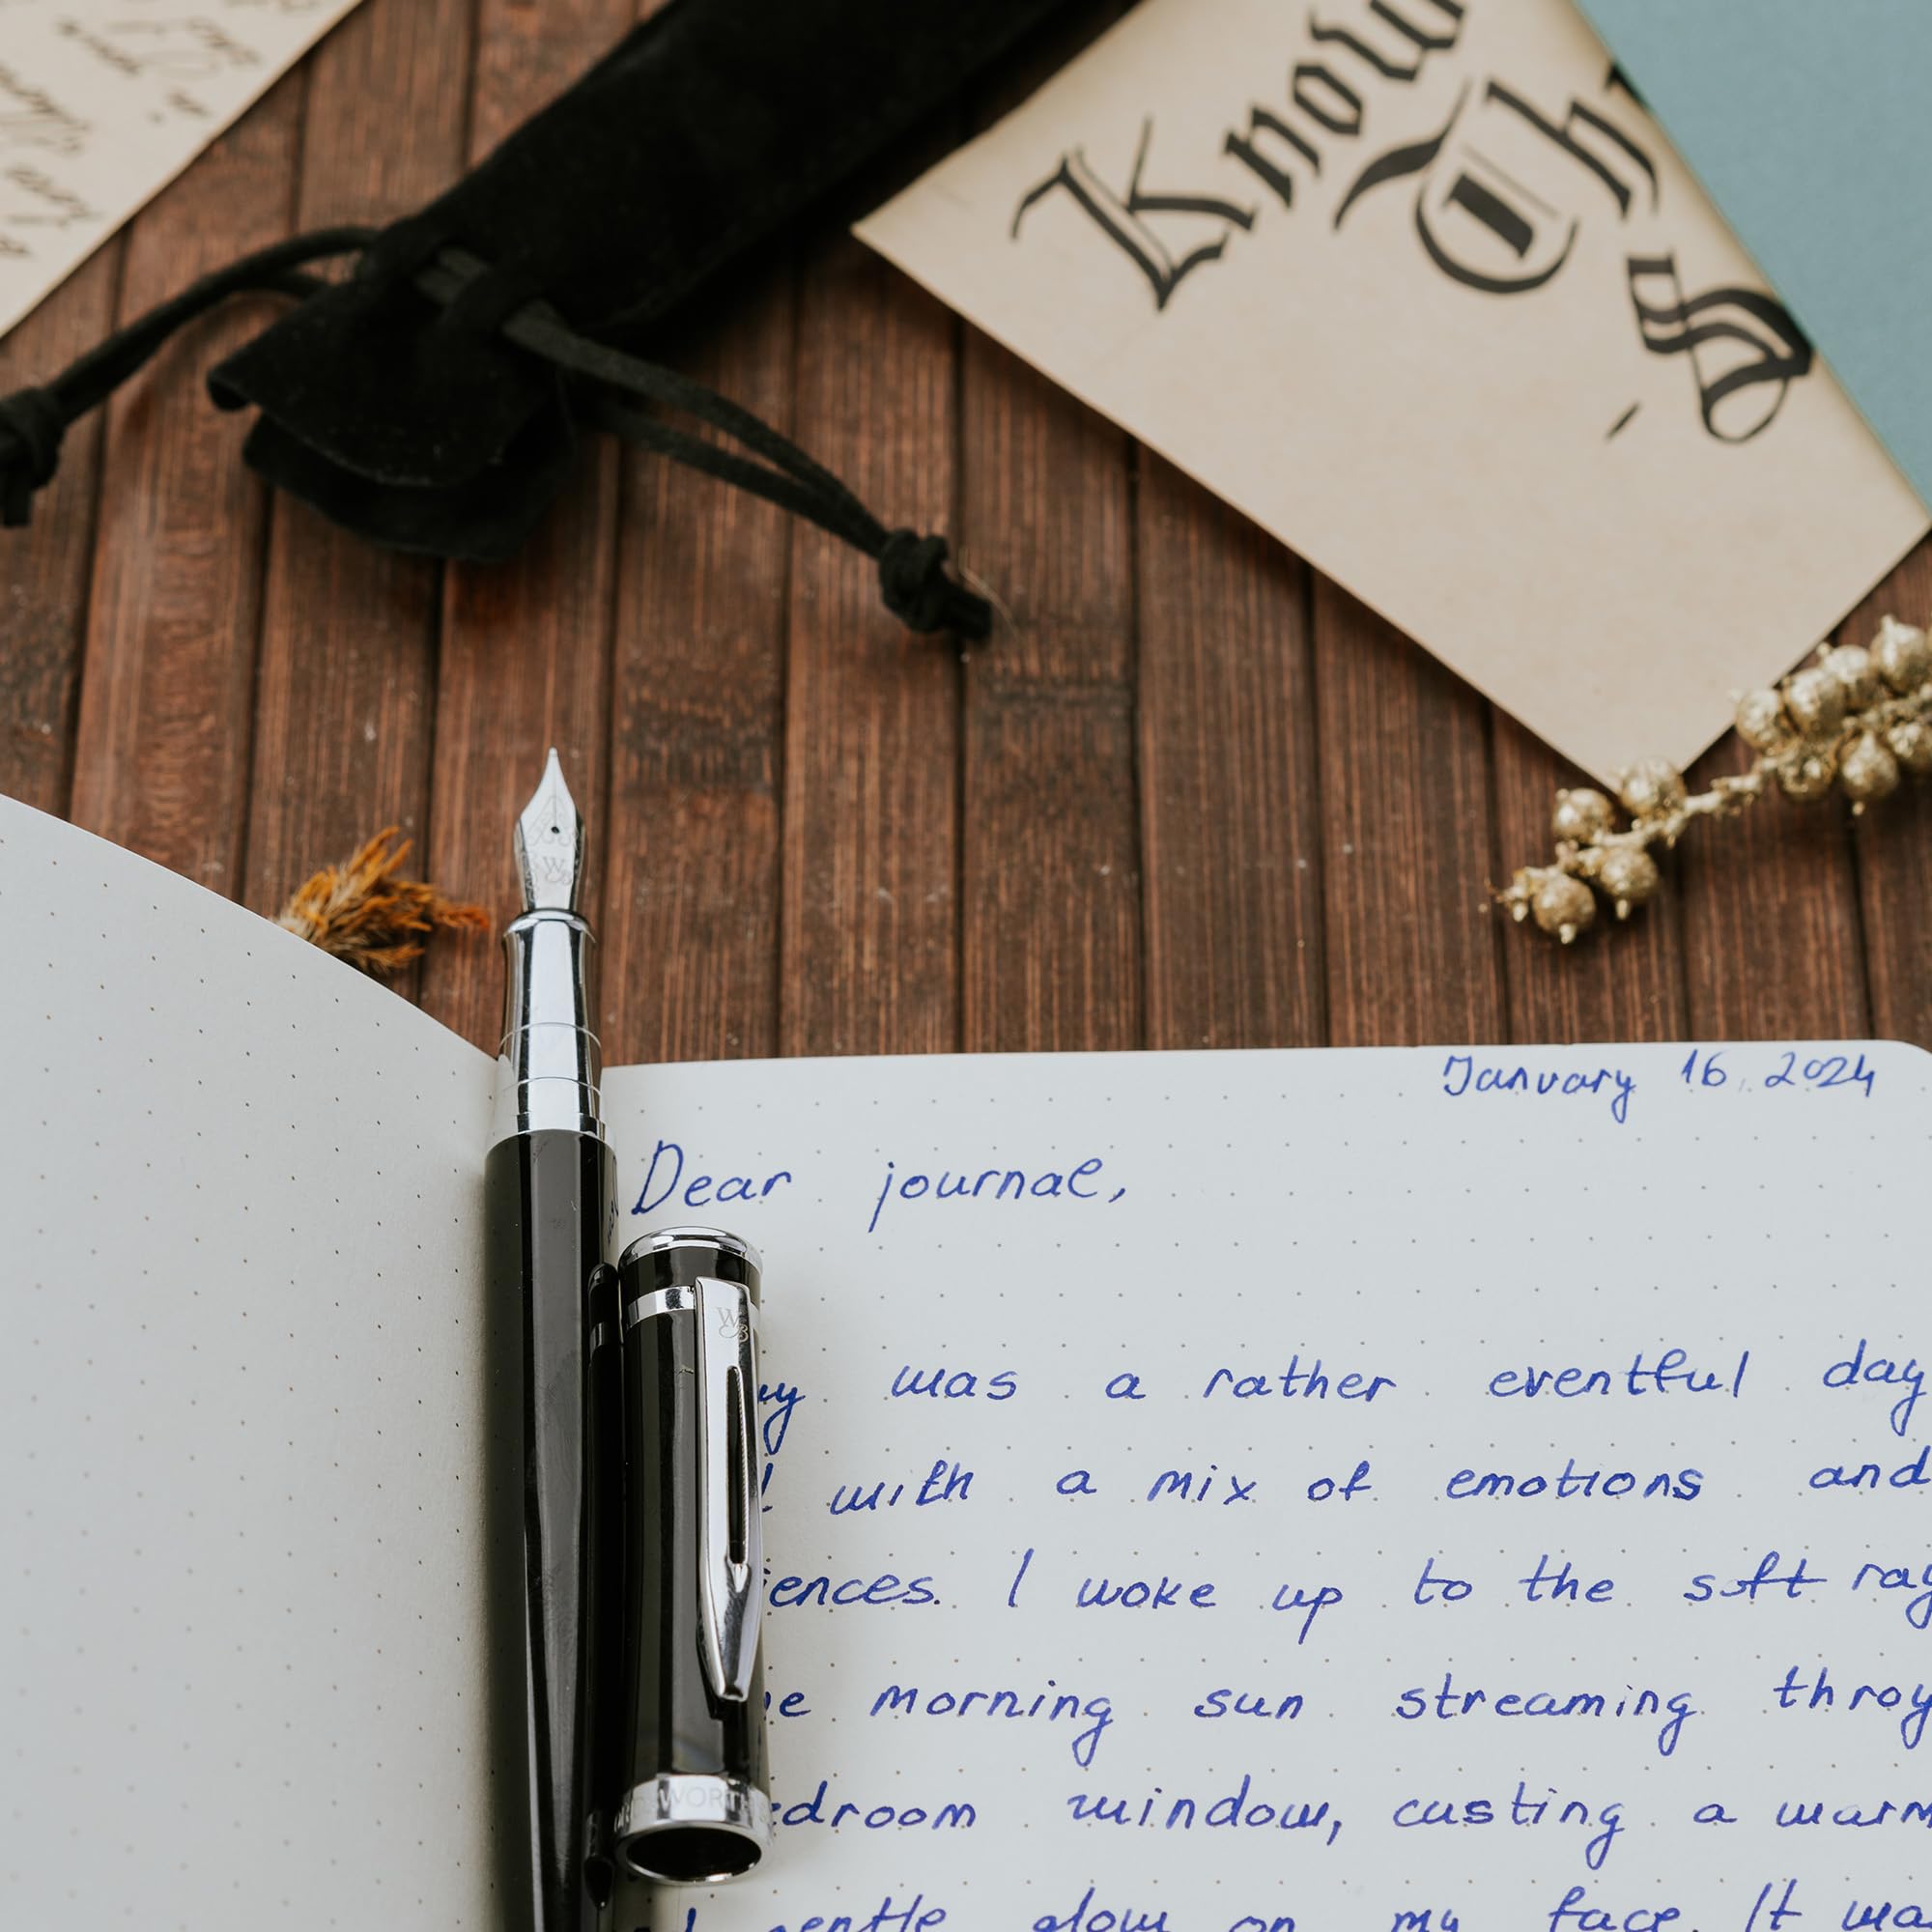 Know
Th
January 16 2024
Dear journal,
was a rather eventful day
with a mix of emotions and
I woke up to the soft
morning sun streaming
window, casting a warm
gentle glow on my face. It